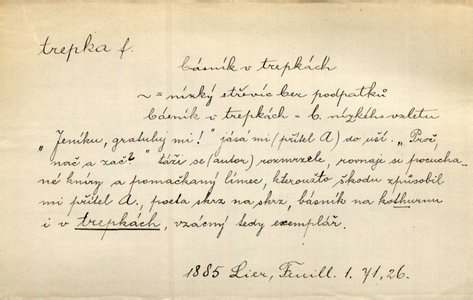 trepka f.
básník v trepkách
~ = nízký střevíc bez podpatků
básník v trepkách = b. nízkého vzletu
„Jeníku, gratuluj mi!" jásá mi (přítel A) do uší. „Proč,
nač a zač?" táži se (autor) rozmrzele, rovnaje si pocucha-
né kníry a pomačkaný límec, kteroužto škodu způsobil
mi přítel A., poeta skrz na skrz, básník na kothurnu
i v trepkách, vzácný tedy exemplář.
1885 Lier, Feuill. 1. 71, 26.